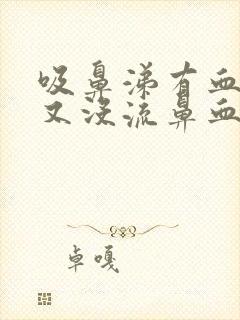 吸鼻涕有血
又没流鼻血
卓嘎